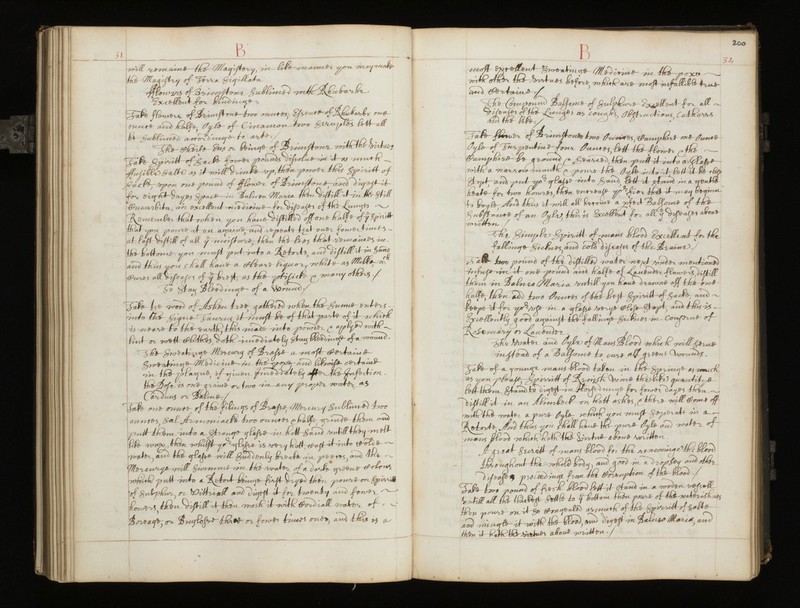 31
B
will remaine the Magistery, in like manner you may make
the Magistry of Terra Sigillata
fflowers of Brimstone Sublimed with Rhubarbe
Excellent for bindinge
Take flowers of Brimstone two ounces, Essence of Rhubarbe one
ounce and halfe, Oyle of Cinamon two Scruples lett all
be Sublimed accordinge to arte
The white Lees or beinge of Brimstone with the virtues
Take Spiritt of Sacke fower pounds dissolve in it as much
ffusible Salte as it will drinke up, then power this Spiritt of
Sacke upon one pound of fflower of Brimstone and digest it
for eight dayes space in Balneo Maria then distill it in the Still
Cucurbita, an excellent medicine for diseases of the Lunges
Remember that when you have distilled off one halfe of y spiritt
that you power it on againe, and repeate it over fower times
at last distill of all y moisture, then the Lees that remaines in
the bottome you must put into a Retorte, and distill it in Sand
and then you shall have a Cleare liquor, white as Milke
Cures all diseases of y brest, as the ptissick & many others /
To Stay Bleedinge of a Wound /
Take the wood of Ashen tree gathered when the Sunne enters
into the Signe Taurus, it must be of that parte of it which
is neare to the earth, this made into power & applyed with
lint or wett Clothes doth imediately Stay bleedinge of a wound
The Sweatinge Mercury of Brasse a most Certaine
Sweatinge Medicine in the poxe, and likewise certaine
in the plague, if given imediately after the Infection
the Dose is one graine or two in any proper water, as
Carduus or Balme /
Take one ounce of the filings of Brasse, Mercury Sublimed two
ounces, Sal Armoniack two ounces & halfe grinde them and
putt them into a Stronge glasse in hott Sand untill they melt
like wax, then whilst y glasse is very hott, wast it into Colde
water, and the glasse will Suddenly breake in peeces, and the
Mercurye will Swimme in the water of a darke greene Colour
which put into a Retort beinge first dryed then power on Spiritt
of Sulphur, or Vittrioll and digest it for twenty and fower
howers, then distill it then wash it with Cordiall water of
Borrage, or Buglosse three or fower times over, and this is a
B
200
32
most Excellent Sweatinge Medicine in the poxe
with other the virtues before, which are most infallible true
and Certaine /
The Compound Balsome of Sulphure Excellent for all
Diseases of the Lunges as Coughs, Obstructions, Catharrs
and the like
Take flower of Brimstone two Ounces, Camphire one Ounce
Oyle of Turpentine four Ounces, lett the flower & the
Camphire be ground & Searced, then putt it into a Glasse
with a narrow mouth & powre the Oyle into it lett it be close
Stopt and putt y glasse into Sand lett it Stand in a gentle
heate for two howers, then encrease y fire till it may beginn
to boyle, And thus it will all become a perfect Balsome of the
Substance of an Oyle, this is Excellent for all y diseases above
written
The Simple Spiritt of mans blood Excellent for the
fallinge Sicknes, and Cold diseases of the Braine /
Take two pound of the distilled water next under mentioned
infuse in it one pound and halfe of Lavender flowers, distill
them in Balneo Maria untill you have drawne off the one
halfe, then add two Ounces of the best Spiritt of Sacke, and
keepe it for y use in a glasse very close Stopt, and this is
Excellently good against the fallinge Sicknes in Conserve of
Rosemary or Lavender
The Water and Oyle of Mans Blood which will Serve
instead of a Balsome to cure all greene wounds.
Take of a younge mans blood taken in the Springe as much
as you please, Spiritt of Renish Wine the like quantitie
lett them Stand to digest in Horsedunge for fower dayes then
distill it in an Alimbeck on hott ashes, & there will Come off
with the water a pure Oyle which you must Seperate in a
Retorte, And thus you shall have the pure Oyle and water of
mans blood which hath the virtue above written
A great Secrett of mans blood for the renewinge the blood
throughout the whole body, and good in a dropsey and other
diseases, proceedinge from the Corruption of the blood /
Take two pound of fresh blood lett it Stand in a woden vessell
untill all the thickest Settle to y bottome then power of the waterish as
then powre on it So Congealed as much of the Spiritt of Salte
and mingle it with the blood, and digest in Balneo Maria, and
then it hath the virtues above written. /